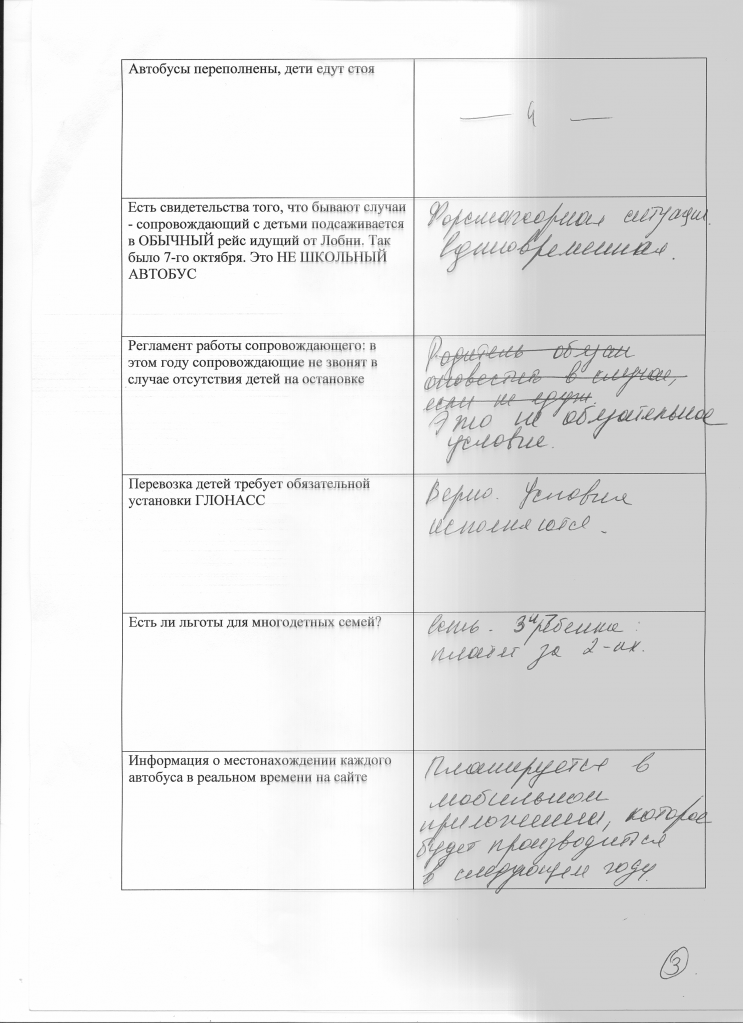 Автобусы переполнены, дети едут стоя
— 4 —
Есть свидетельства того, что бывают случаи
- сопровождающий с детьми подсаживается
в ОБЫЧНЫЙ рейс идущий от Лобни. Так
было 7-го октября. Это НЕ ШКОЛЬНЫЙ
АВТОБУС
Форсмажорная ситуация.
Единовременная.
Регламент работы сопровождающего: в
этом году сопровождающие не звонят в
случае отсутствия детей на остановке
Родитель обязан
оповестить в случае,
если не едут.
Это не обязательное
условие.
Перевозка детей требует обязательной
установки ГЛОНАСС
Верно. Условия
исполняются.
Есть ли льготы для многодетных семей?
Есть. 3 ребенка:
платят за 2-их.
Информация о местонахождении каждого
автобуса в реальном времени на сайте
Планируется в
мобильном
приложении, которое
будет производится
в следующем году.
3